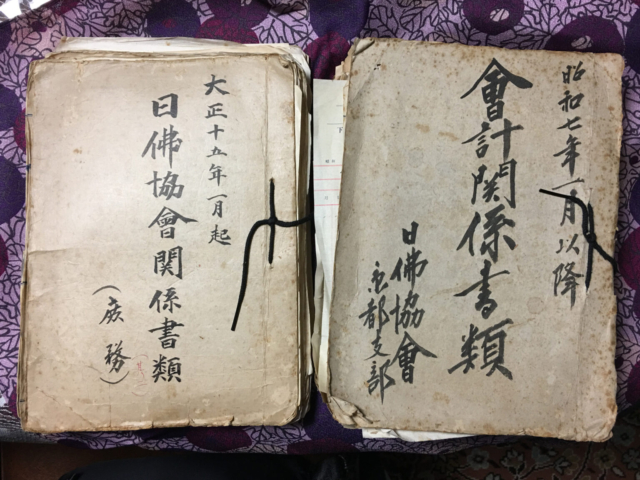 大正十五年一月起
日佛協會関係書類
(庻務)
昭和七年一月以降
會計関係書類
日佛協會
京都支部